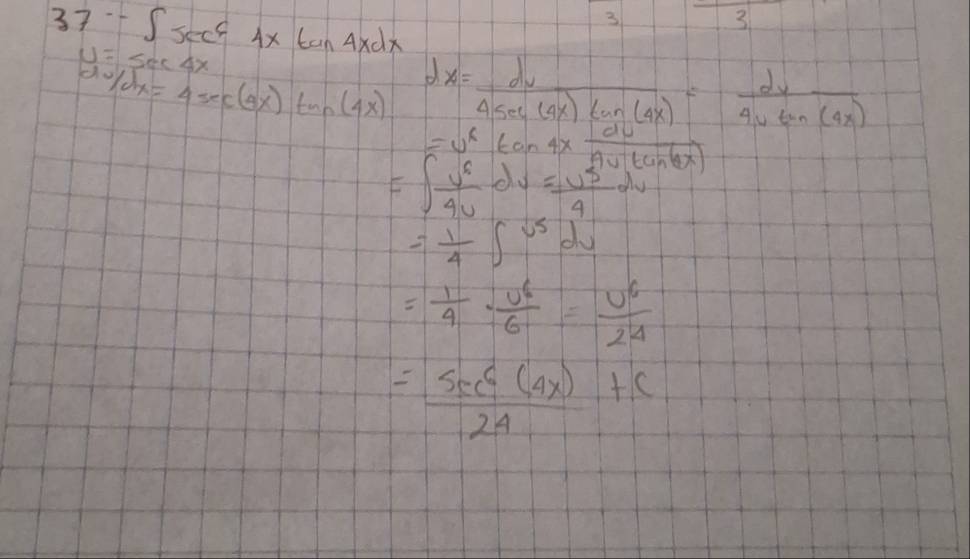 3 3
37-- ∫ sec⁶ 4x tan 4xdx
u = sec 4x
du/dx = 4sec(4x) tan(4x)
dx = du/(4sec(4x) tan(4x)) = du/(4u tan(4x))
= u⁶ tan 4x du/(4u tan(4x))
= ∫ u⁶/4u du = u⁵/4 du
= 1/4 ∫ u⁵ du
= 1/4 · u⁶/6 = u⁶/24
= sec⁶(4x)/24 + C